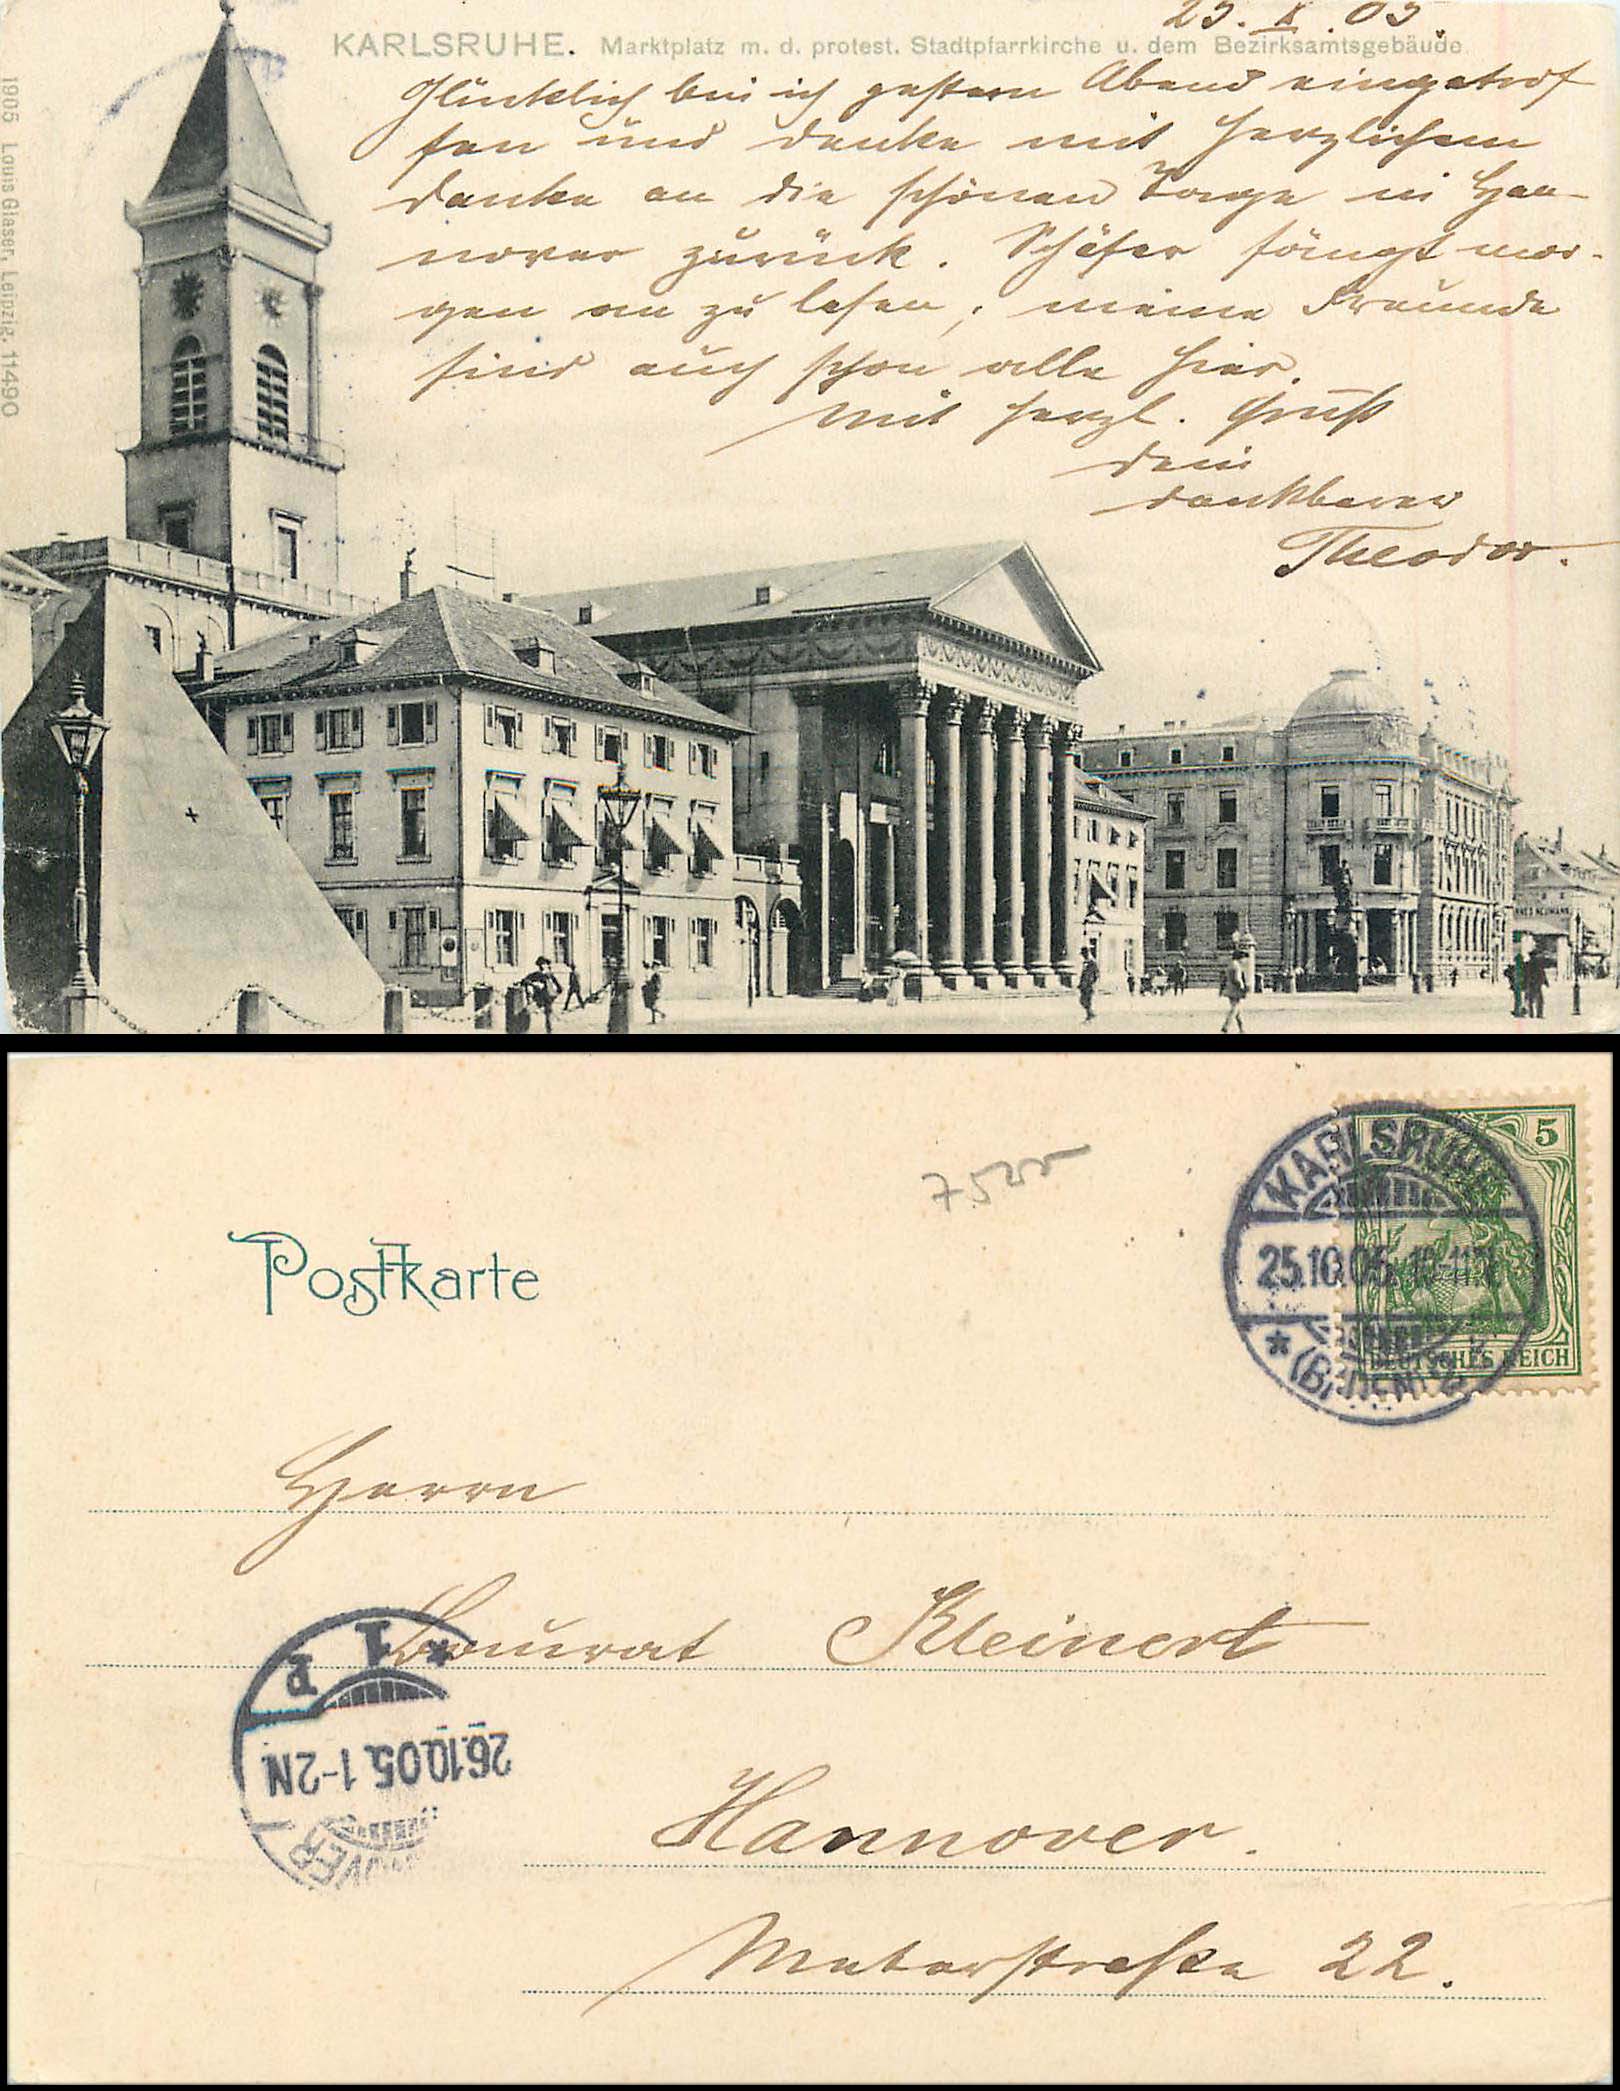 25. X. 05.
KARLSRUHE. Marktplatz m. d. protest. Stadtpfarrkirche u. dem Bezirksamtsgebäude.
1905 Louis Glaser, Leipzig. 11490
Glücklich bin ich gestern Abend eingetrof
fen und danke mit herzlichem
danke an die schönen Tage in Han-
nover zurück. Schäfer fängt mor-
gen an zu lesen, meine Freunde
sind auch schon alle hier.
Mit herzl. Gruß
dein
dankbarer
Theodor.
NEUMANN
Postkarte
5
DEUTSCHES REICH
KARLSRUHE
25.10.05. 10-11
* (BADEN)
Herrn
Baurat Kleinert
Hannover.
straße 22.
* 1 P
26.10.05. 1-2N
VER